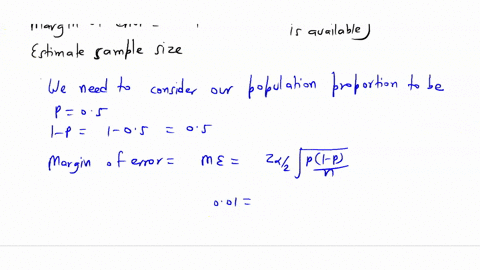 Margin of error =
is available)
Estimate sample size
We need to consider our population proportion to be
P = 0.5
1-P = 1-0.5 = 0.5
Margin of error = ME = Zα/2 √(p(1-p)/n)
0.01 =